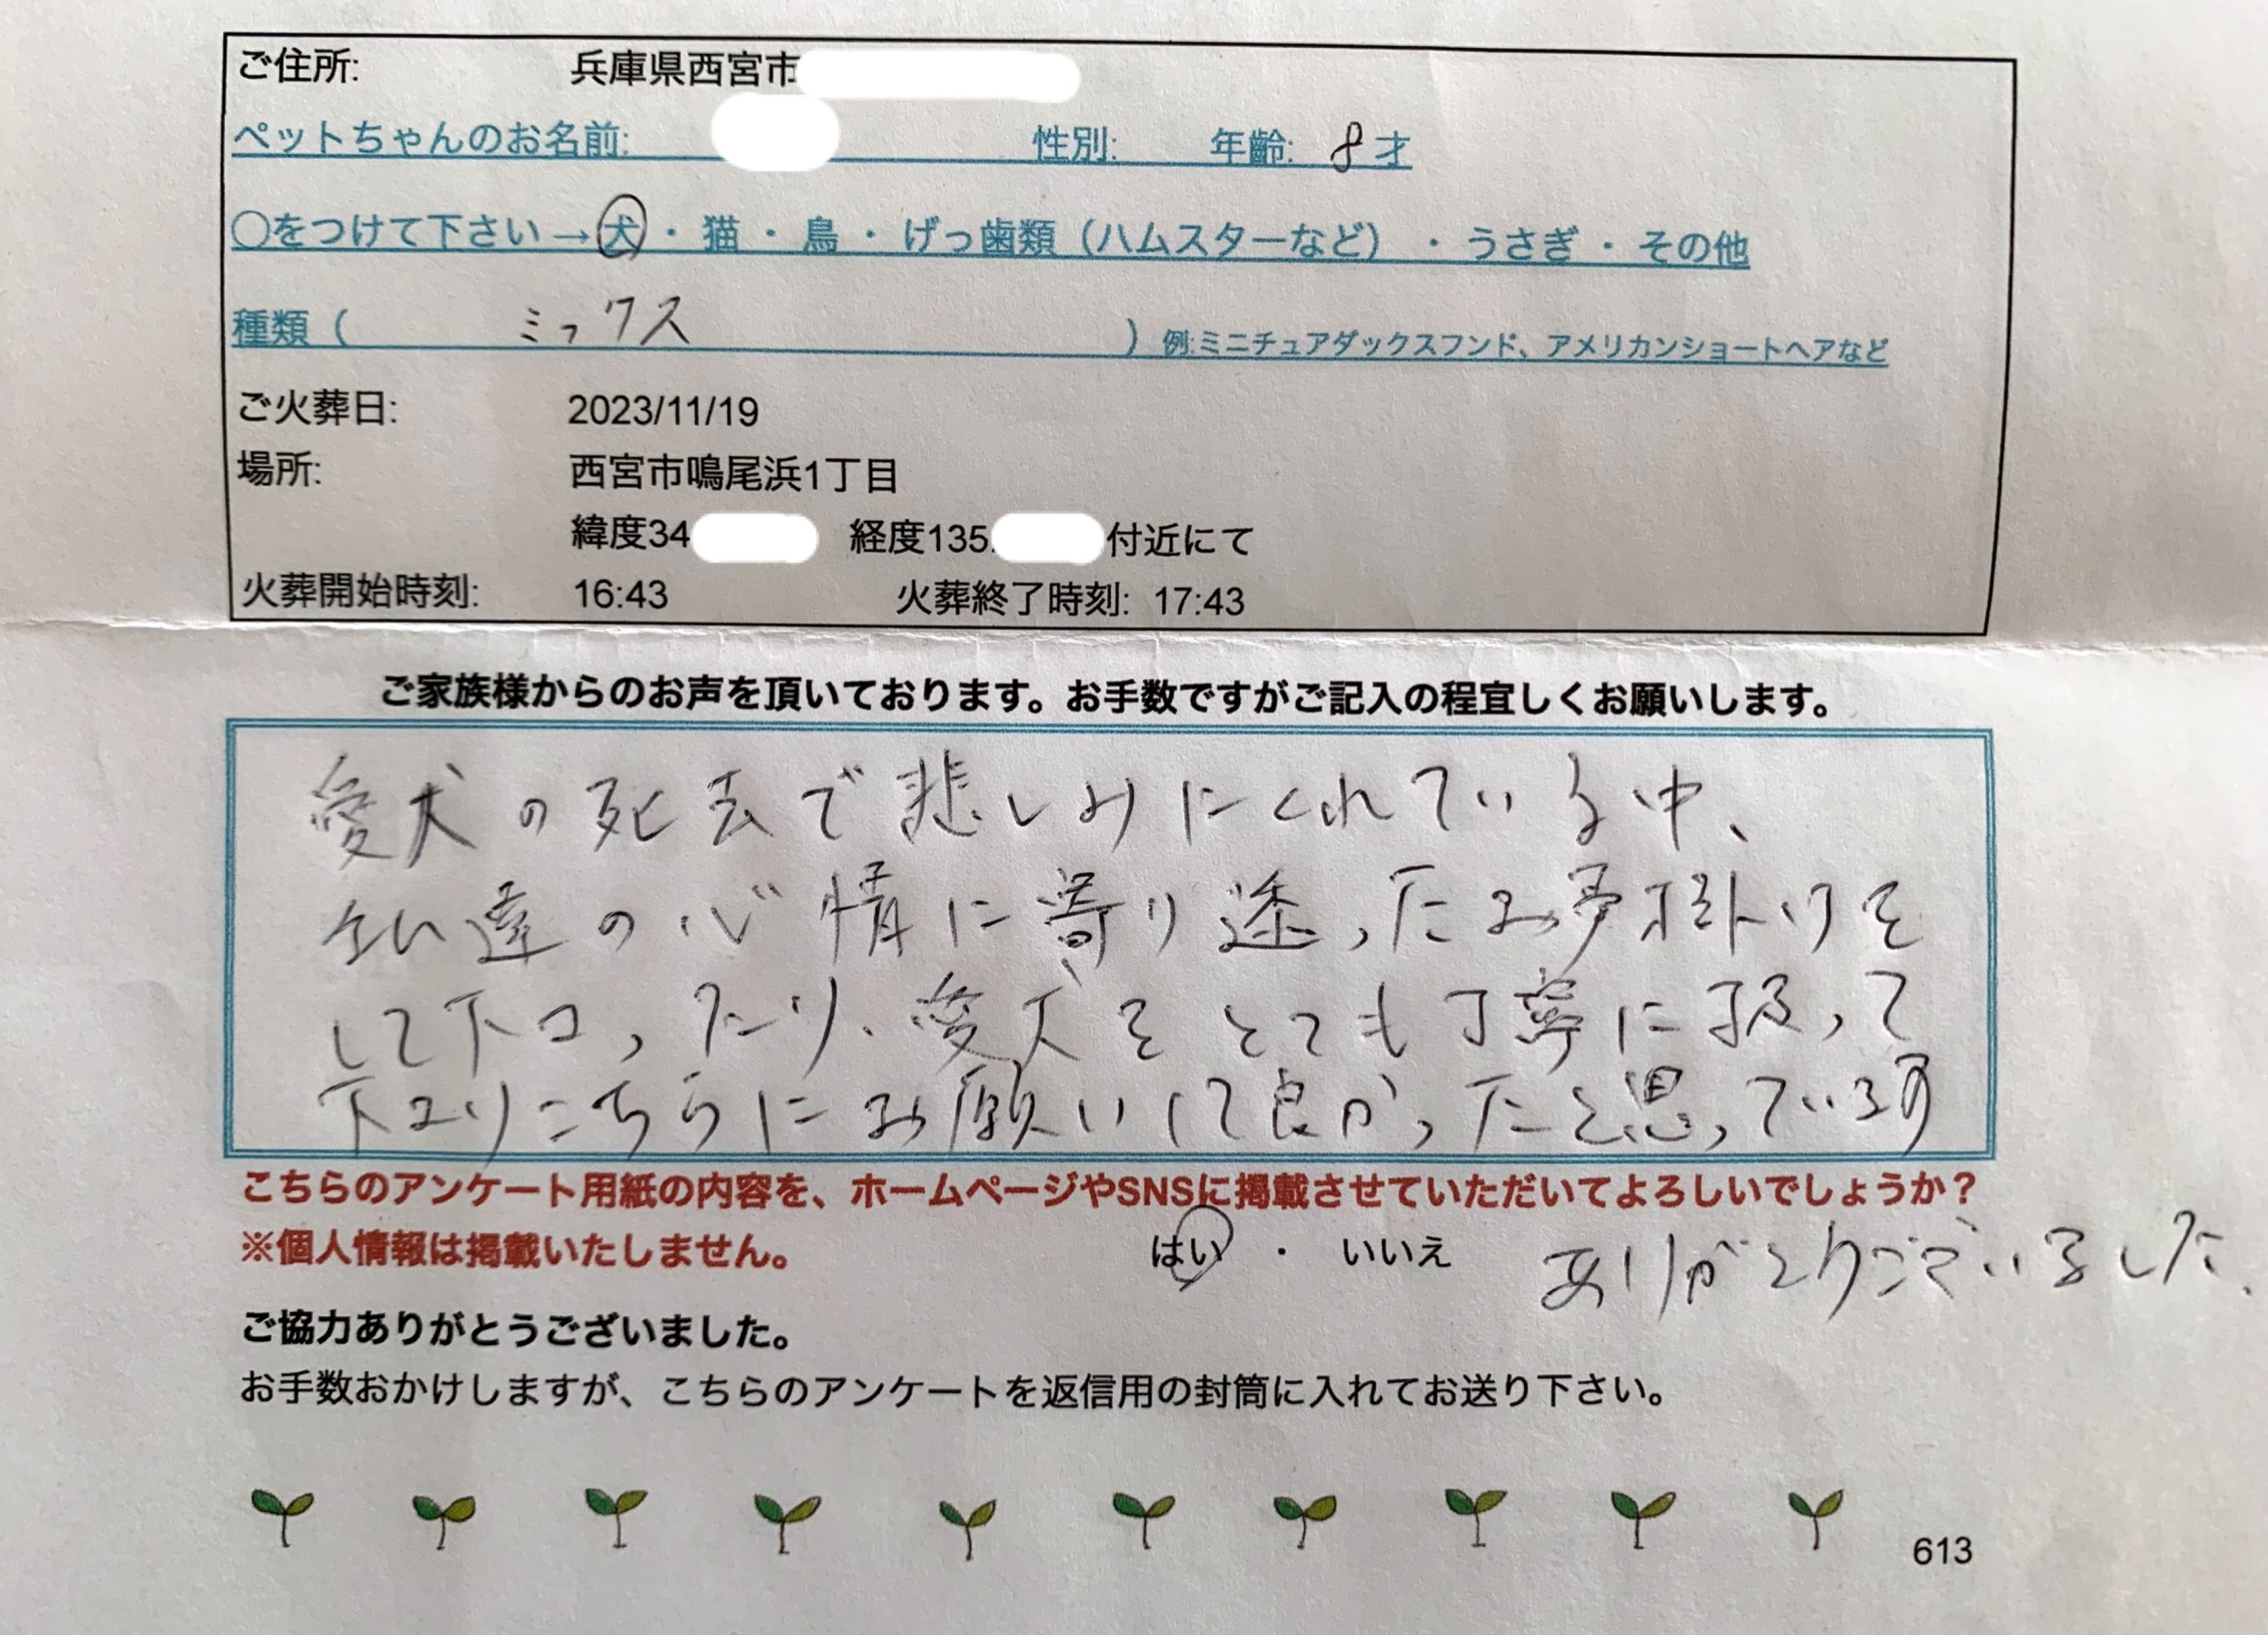 ご住所: 兵庫県西宮市
ペットちゃんのお名前: 性別: 年齢: 8才
○をつけて下さい→犬・猫・鳥・げっ歯類（ハムスターなど）・うさぎ・その他
種類（ ミックス ）例:ミニチュアダックスフンド、アメリカンショートヘアなど
ご火葬日: 2023/11/19
場所: 西宮市鳴尾浜1丁目
緯度34 経度135. 付近にて
火葬開始時刻: 16:43 火葬終了時刻: 17:43
ご家族様からのお声を頂いております。お手数ですがご記入の程宜しくお願いします。
愛犬の死去で悲しみにくれている中、
私達の心情に寄り添ったお声掛けを
して下さったり、愛犬をとても丁寧に扱って
下さりこちらにお願いして良かったと思っています
こちらのアンケート用紙の内容を、ホームページやSNSに掲載させていただいてよろしいでしょうか？
※個人情報は掲載いたしません。 はい ・ いいえ ありがとうございました。
ご協力ありがとうございました。
お手数おかけしますが、こちらのアンケートを返信用の封筒に入れてお送り下さい。
613